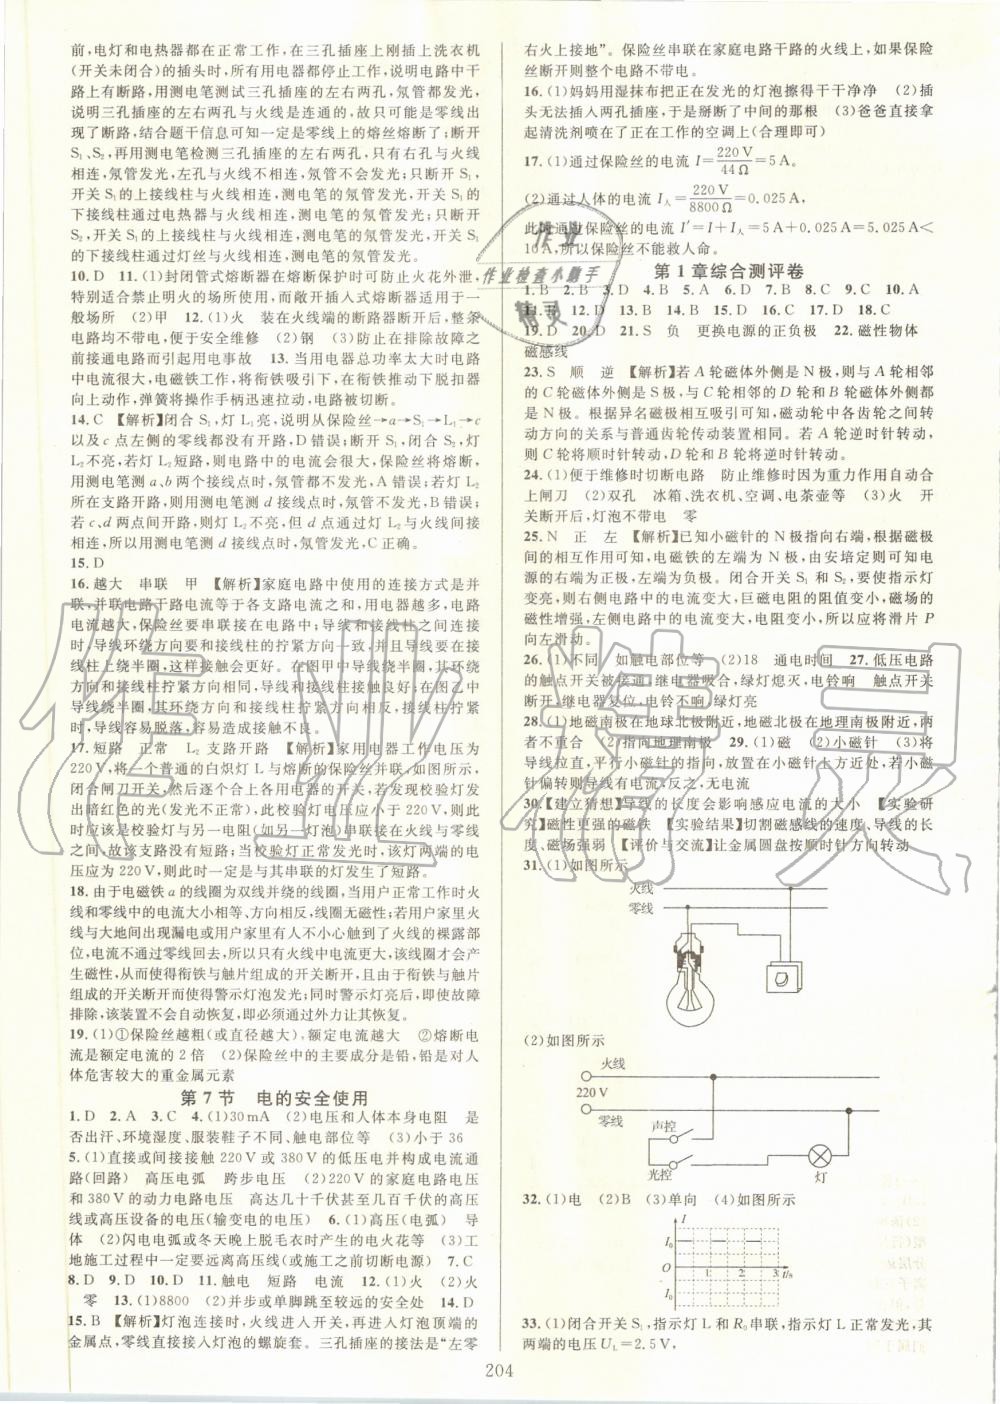 前,电灯和电热器都在正常工作,在三孔插座上刚插上洗衣机
(开关未闭合)的插头时,所有用电器都停止工作,说明电路中干
路上有断路,用测电笔测试三孔插座的左右两孔,氖管都发光,
说明三孔插座的左右两孔与火线是连通的,故只可能是零线出
现了断路,结合题干信息可知一定是零线上的熔丝熔断了;断开
S₁、S₂,再用测电笔检测三孔插座的左右两孔,只有右孔与火线
相连,氖管发光,左孔与火线不相连,氖管不会发光;只断开S₁,
开关S₁的上接线柱与火线相连,测电笔的氖管发光,开关S₁的
下接线柱通过电热器与火线相连,测电笔的氖管发光;只断开
S₂,开关S₂的上接线柱与火线相连,测电笔的氖管发光,S₂的
下接线柱通过电灯与火线相连,测电笔的氖管发光。
10.D 11.(1)封闭管式熔断器在熔断保护时可防止火花外泄,
特别适合禁止明火的场所使用,而敞开插入式熔断器适用于一
般场所 (2)甲 12.(1)火 装在火线端的断路器断开后,整条
电路均不带电,便于安全维修 (2)钢 (3)防止在排除故障之
前接通电路而引起用电事故 13.当用电器总功率太大时电路
中电流很大,电磁铁工作,将衔铁吸引下,在移动过程中脱扣器
向上动作,弹簧将操作手柄迅速拉动,电路被切断。
14.C 【解析】闭合S₁,灯L₁亮,说明从保险丝→a→S₁→L₁→c
以及c点左侧的零线都没有开路,D错误;断开S₁、闭合S₂,灯
L₂不亮,若灯L₂短路,则电路中的电流会很大,保险丝将熔断,
用测电笔测a、b两个接线点时,氖管都不发光,A错误;若灯L₂
所在支路开路,则用测电笔测d接线点时,氖管不发光,B错误;
若c、d两点间开路,则灯L₂不亮,但d点通过灯L₂与火线间接
相连,所以用测电笔测d接线点时,氖管发光,C正确。
15.D
16.越大 串联 甲 【解析】家庭电路中使用的连接方式是并
联,并联电路干路电流等于各支路电流之和,用电器越多,电路
电流越大,保险丝要串联接在电路中;导线和接线柱之间接线
时,导线环绕方向要和接线柱的拧紧方向一致,并且导线要在接
线柱上绕半圈,这样接触更好。在图甲中导线绕半圈,其环绕
方向和接线柱拧紧方向相同,导线和接线柱接触良好;在图乙中
导线绕半圈,其环绕方向和接线柱拧紧方向相反,拧紧接线柱
时,导线容易脱落,容易造成接触不良。
17.短路 正常 L₂支路开路 【解析】家用电器工作电压为
220V,将一个普通的白炽灯L与熔断的保险丝并联,如图所示,
闭合闸刀开关,然后逐个合上各用电器的开关,若发现校验灯发
出暗红色的光(发光不正常),此校验灯电压应小于220V,则此
时应该是校验灯与另一电阻(如另一灯泡)串联接在火线与零线
之间,故该支路没有短路;当校验灯正常发光时,该灯两端的电
压应为220V,则此时一定是与其串联的灯发生了短路。
18.由于电磁铁a的线圈为双线并绕的线圈,当用户正常工作时火
线和零线中的电流大小相等、方向相反,线圈无磁性;若用户家里火
线与大地间出现漏电或用户家里有人不小心触到了火线的裸露部
位,电流不通过零线回去,所以火线中电流更大,该线圈才会产
生磁性,从而使得衔铁与触片组成的开关断开,由于衔铁与触片
组成的开关断开而使得警示灯泡发光;同时警示灯亮后,即使故障
排除,该装置不会自动恢复,即必须通过外力让其恢复。
19.(1)①保险丝越粗(或直径越大),额定电流越大 ②熔断电
流是额定电流的2倍 (2)保险丝中的主要成分是铅,铅是对人
体危害较大的重金属元素
第7节 电的安全使用
1.D 2.A 3.C 4.(1)30mA (2)电压和人体本身电阻 是
否出汗、环境湿度、服装鞋子不同、触电部位等 (3)小于36
5.(1)直接或间接接触220V或380V的低压电并构成电流通
路(回路) 高压电弧 跨步电压 (2)220V的家庭电路电压
和380V的动力电路电压 高达几十千伏甚至几百千伏的高压
线或高压设备的电压(输变电的电压) 6.(1)高压(电弧) 导
体 (2)闪电电弧或冬天晚上脱毛衣时产生的电火花等 (3)工
地施工过程中一定要远离高压线(或施工之前切断电源) 7.C
8.D 9.D 10.D 11.触电 短路 电流 12.(1)火 (2)火
零 13.(1)8800 (2)并步或单脚跳至较远的安全处 14.D
15.B 【解析】灯泡连接时,火线进入开关,再进入灯泡顶端的
金属点,零线直接接入灯泡的螺旋套。三孔插座的接法是“左零
右火上接地”。保险丝串联在家庭电路干路的火线上,如果保险
丝断开则整个电路不带电。
16.(1)妈妈用湿抹布把正在发光的灯泡擦得干干净净 (2)插
头无法插入两孔插座,于是掰断了中间的那根 (3)爸爸直接拿
起清洗剂喷在了正在工作的空调上(合理即可)
17.(1)通过保险丝的电流I=220V/44Ω=5A。
(2)通过人体的电流I人=220V/8800Ω=0.025A,
此时通过保险丝的电流I′=I+I人=5A+0.025A=5.025A<
10A,所以保险丝不能救人命。
第1章综合测评卷
1.B 2.B 3.D 4.B 5.A 6.D 7.B 8.C 9.C 10.A
11.B 12.D 13.B 14.B 15.C 16.C 17.D 18.C
19.D 20.D 21.S 负 更换电源的正负极 22.磁性物体
磁感线
23.S 顺 逆 【解析】若A轮磁体外侧是N极,则与A轮相邻
的C轮磁体外侧是S极,与C轮相邻的D轮和B轮磁体外侧都
是N极。根据异名磁极相互吸引可知,磁动轮中各齿轮之间转
动方向的关系与普通齿轮传动装置相同。若A轮逆时针转动,
则C轮顺时针转动,D轮和B轮逆时针转动。
24.(1)便于维修时切断电路 防止维修时因为重力作用自动合
上闸刀 (2)双孔 冰箱、洗衣机、空调、电茶壶等 (3)火 开
关断开后,灯泡不带电 零
25.N 正 左 【解析】已知小磁针的N极指向右端,根据磁极
间的相互作用可知,电磁铁的左端为N极,由安培定则可知电
源的右端为正极,左端为负极。闭合开关S₁和S₂,要使指示灯
变亮,则右侧电路中的电流变大,巨磁电阻的阻值变小,磁场的
磁性增强,左侧电路中的电流变大,电阻变小,所以应将滑片P
向左滑动。
26.(1)不同 如触电部位等 (2)18 通电时间 27.低压电路
的触点开关被接通,继电器吸合,绿灯熄灭,电铃响 触点开关
断开,继电器复位,电铃不响,绿灯亮
28.(1)地磁南极在地球北极附近,地磁北极在地理南极附近,两
者不重合 (2)指向地理南极 29.(1)磁 (2)小磁针 (3)将
导线拉直,平行小磁针的指向,放置在小磁针上方近处,若小磁
针偏转则导线有电流,反之,无电流
30.【建立猜想】导线的长度会影响感应电流的大小 【实验研
究】磁性更强的磁铁 【实验结果】切割磁感线的速度、导线的长
度、磁场强弱 【评价与交流】让金属圆盘按顺时针方向转动
31.(1)如图所示
火线
零线
(2)如图所示
火线
220V
零线
声控
光控
灯
32.(1)电 (2)B (3)单向 (4)如图所示
I
I₀
O 1 2 3 t/s
I₀
33.(1)闭合开关S₁,指示灯L和R₀串联,指示灯L正常发光,其
两端的电压U_L=2.5V,
204
作业
作业检查小助手
精灵
作业精灵